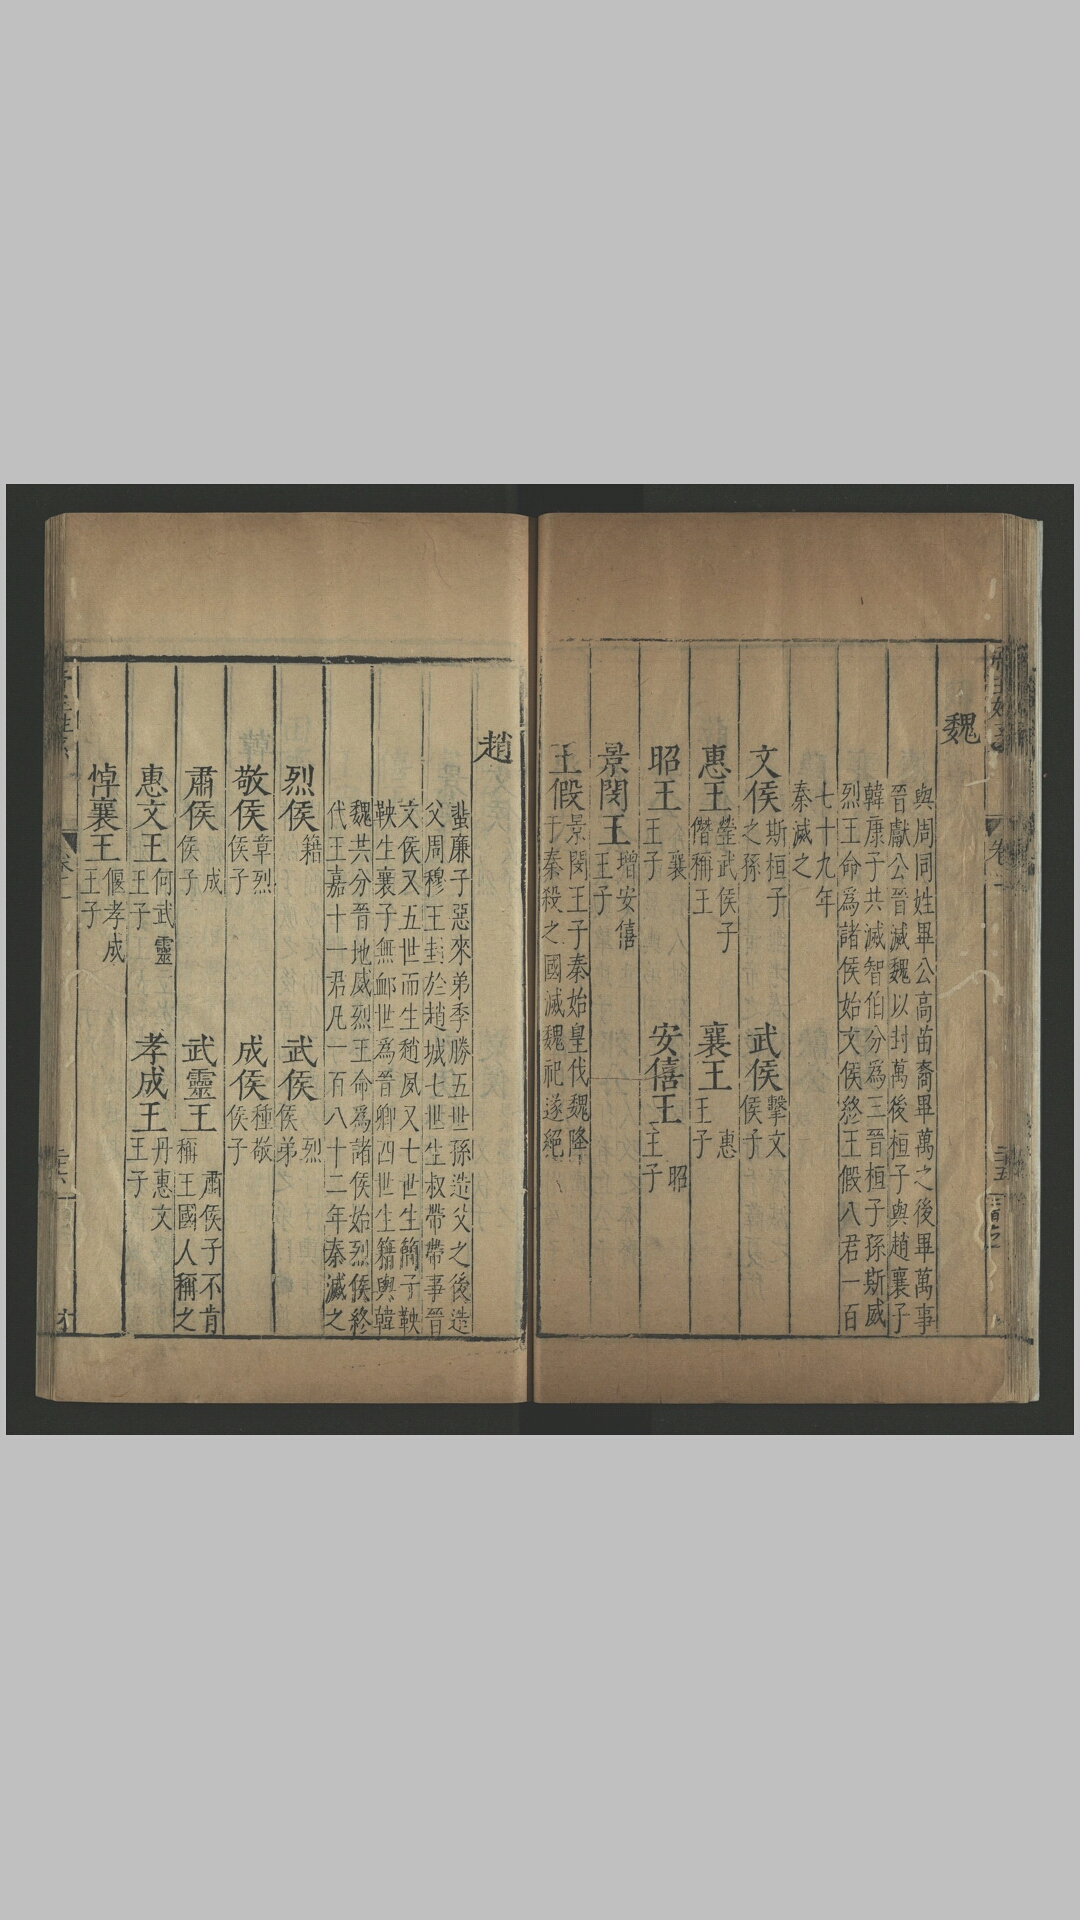 魏
與周同姓畢公高苗裔畢萬之後畢萬事
晉獻公晉滅魏以封萬後桓子與趙襄子
韓康子共滅智伯分為三晉桓子孫斯威
烈王命爲諸侯始文侯終王假八君一百
七十九年
秦滅之
文侯斯桓子之孫 武侯擊文侯子
惠王罃武侯子僭稱王 襄王惠王子
昭王襄王子 安僖王昭王子
景閔王增安僖王子
王假景閔王子秦始皇伐魏降于秦殺之國滅魏祀遂絕
趙
蜚廉子惡來弟季勝五世孫造父之後造
父周穆王封於趙城七世生叔帶帶事晉
文侯又五世而生趙夙又七世生簡子鞅
鞅生襄子無卹世爲晉卿四世生籍與韓
魏共分晉地威烈王命爲諸侯始烈侯終
代王嘉十一君凡一百八十二年秦滅之
烈侯籍 武侯烈侯弟
敬侯章烈侯子 成侯種敬侯子
肅侯成侯子 武靈王肅侯子不肯稱王國人稱之
惠文王何武靈王子 孝成王丹惠文王子
悼襄王偃孝成王子